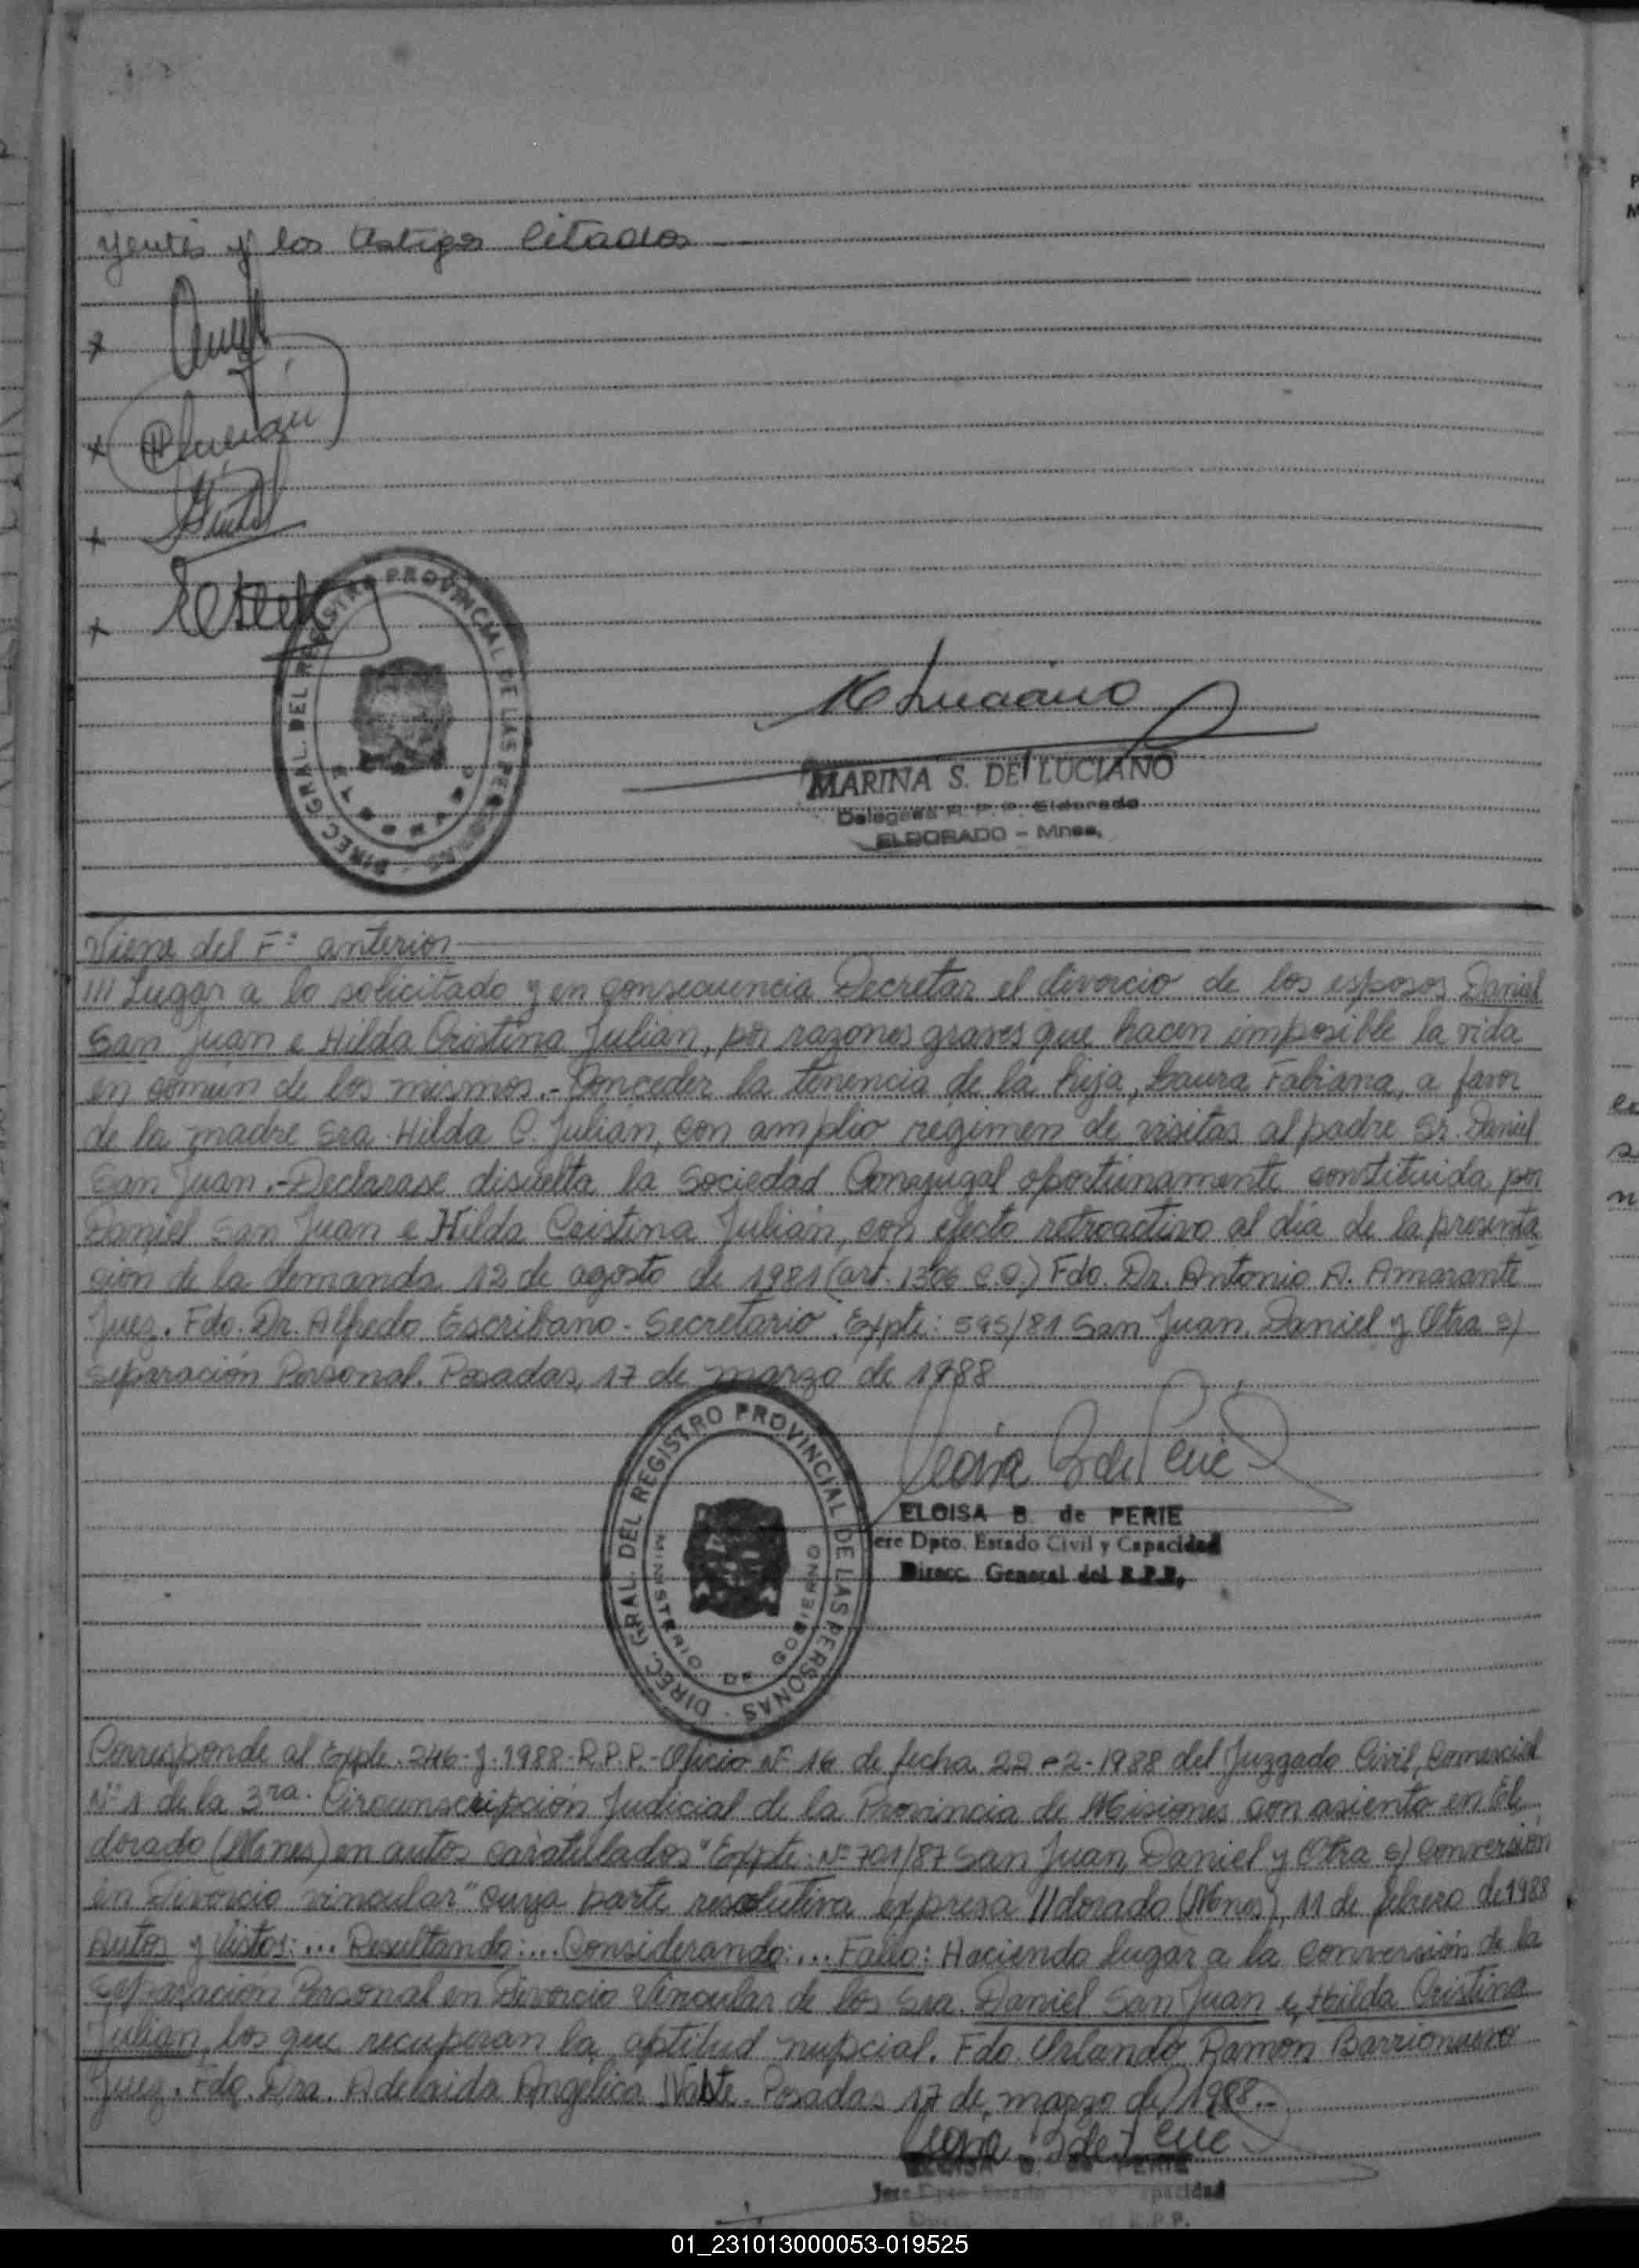 yentes y los testigos citados
DIREC. GRAL. DEL REGISTRO PROVINCIAL DE LAS PERSONAS
MARINA S. DE LUCIANO
Delegada R. P. P. Eldorado
ELDORADO - Mnes.
Viene del Fº anterior
/// Lugar a lo solicitado y en consecuencia Decretar el divorcio de los esposos Daniel
San Juan e Hilda Cristina Julian, por razones graves que hacen imposible la vida
en común de los mismos.- Conceder la tenencia de la hija, Laura Fabiana, a favor
de la madre Sra. Hilda C. Julian, con amplio regimen de visitas al padre Sr. Daniel
San Juan.- Declarase disuelta la Sociedad Conyugal oportunamente constituida por
Daniel San Juan e Hilda Cristina Julian, con efecto retroactivo al día de la presenta
cion de la demanda 12 de agosto de 1981 (art. 1306 C.C.) Fdo. Dr. Antonio A. Amarante
Juez. Fdo. Dr. Alfredo Escribano - Secretario. Expte: 595/81 San Juan, Daniel y Otra s/
separación Personal. Posadas, 17 de marzo de 1988
DIREC. GRAL. DEL REGISTRO PROVINCIAL DE LAS PERSONAS
MINISTERIO DE GOBIERNO
ELOISA B. de PERIE
Jefe Dpto. Estado Civil y Capacidad
Direcc. General del R.P.P.
Corresponde al Expte. 246-J-1988-R.P.P.- Oficio Nº 16 de fecha 22-2-1988 del Juzgado Civil, Comercial
Nº 1 de la 3ra. Circunscripción Judicial de la Provincia de Misiones con asiento en El
dorado (Mnes) en autos caratulados "Expte: Nº 701/87 San Juan, Daniel y Otra s/ Conversión
en Divorcio vincular" cuya parte resolutiva expresa //dorado (Mnes), 11 de febrero de 1988
Autos y Vistos:... Resultando:... Considerando:... Fallo: Haciendo lugar a la conversión de la
Separación Personal en Divorcio Vincular de los Sra. Daniel San Juan e Hilda Cristina
Julian, los que recuperan la aptitud nupcial. Fdo. Orlando Ramon Barrionuevo
Juez. Fdo. Dra. Adelaida Angélica Posadas 17 de marzo de 1988.-
ELOISA B. de PERIE
Jefe Dpto Estado Capacidad
R.P.P.
01_231013000053-019525